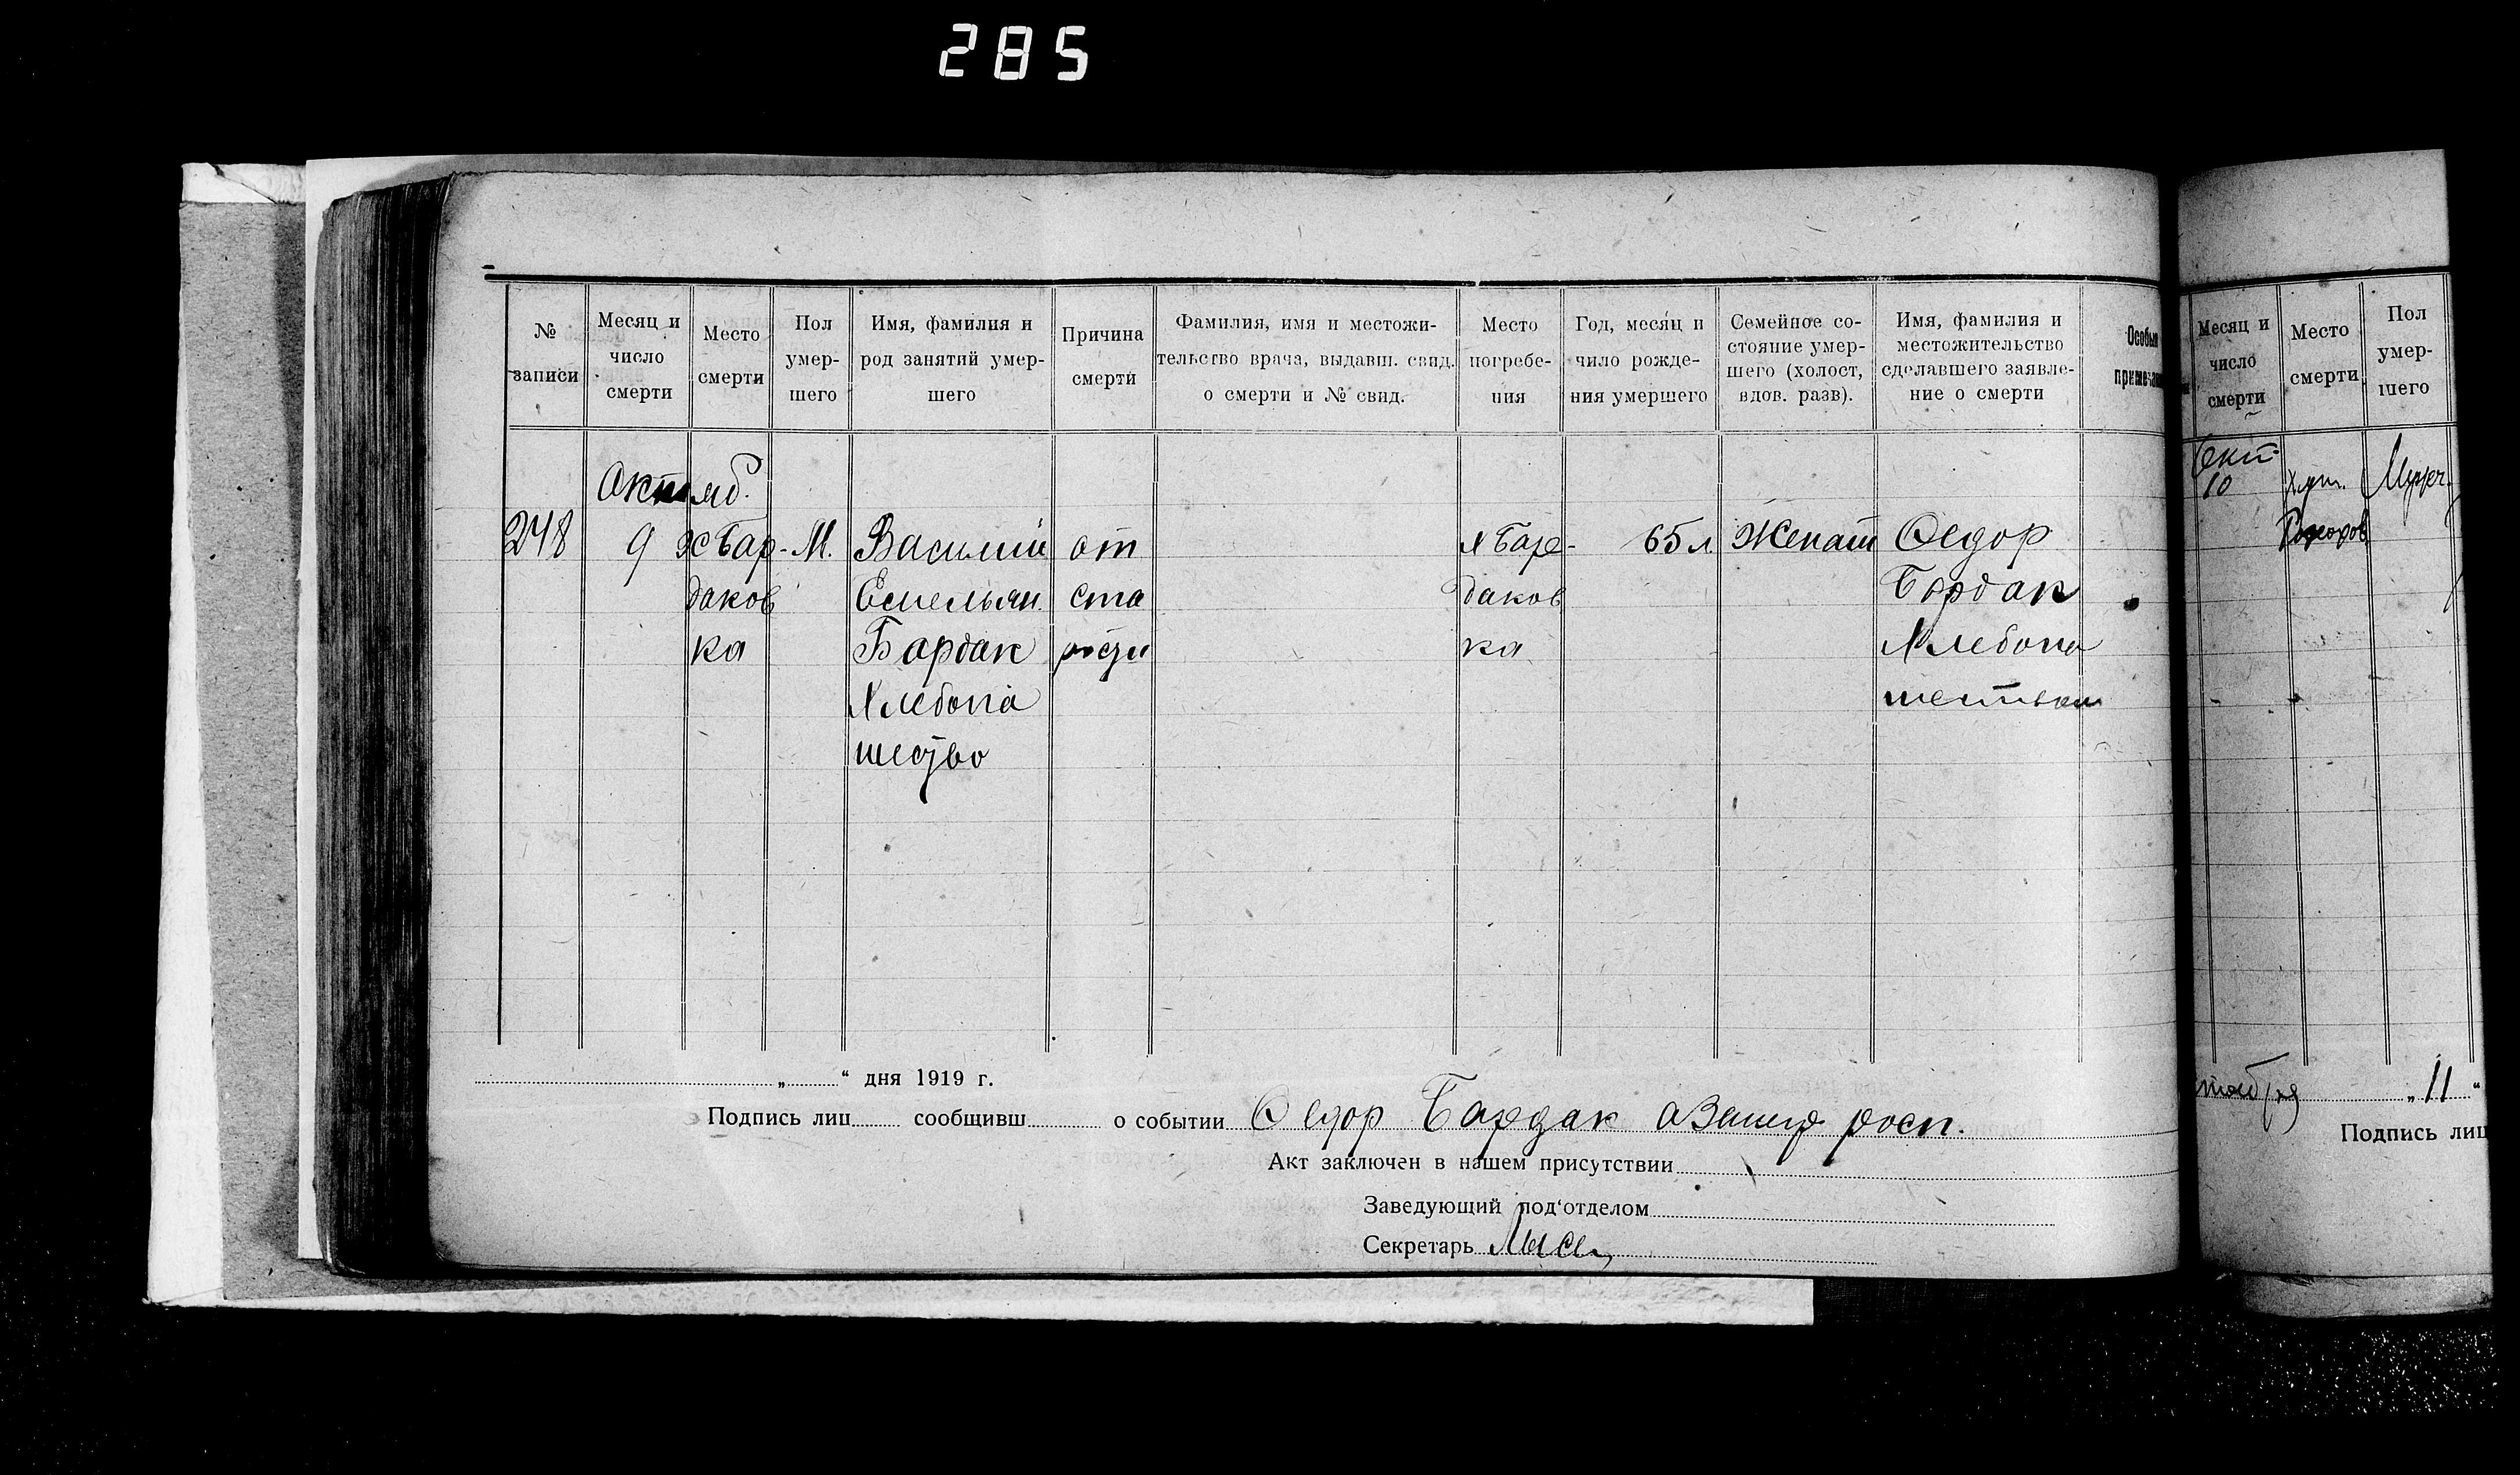 285
№ записи
Месяц и число смерти
Место смерти
Пол умер- шего
Имя, фамилия и род занятий умер- шего
Причина смерти
Фамилия, имя и местожи- тельство врача, выдавш. свид. о смерти и № свид.
Место погребе- ния
Год, месяц и чило рожде- ния умершего
Семейное со- стояние умер- шего (холост, вдов. разв).
Имя, фамилия и местожительство сделавшего заявле- ние о смерти
Особые
Октяб.
248 9 х Бар- М. Василий от х Бар- 65 л Женат Федор
даков Емельян. ста даков Бардак
ка Бардак рости ка Хлебопа
Хлебопа шеством
шество
„ “ дня 1919 г.
Подпись лиц сообщивш о событии Федор Бардак
Акт заключен в нашем присутствии
Заведующий под‘отделом
Секретарь
Месяц и число смерти
Место смерти
Пол умер- шего
Окт
10 Хут.
„ 11 “
Подпись лиц